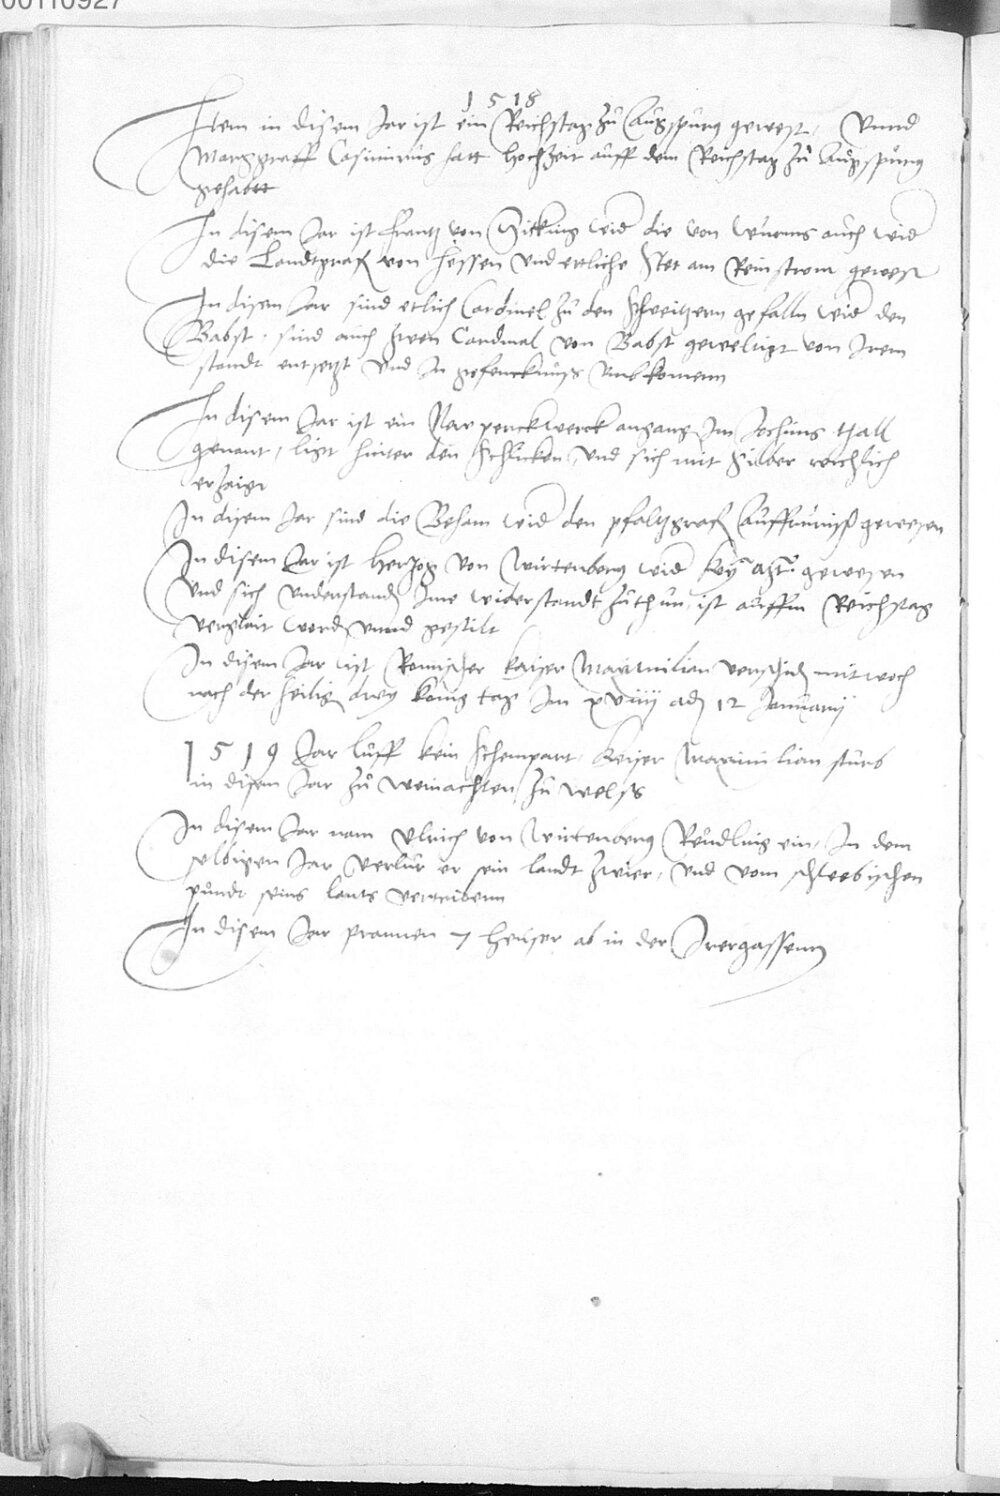 00110927
1518
Item in disem Jar ist ein Reichstag zu Augspurg gewest, Vnnd
Marggraff Casimirus hatt hochzeit auff dem Reichstag zu Augspurg
gehabtt
In disem Jar ist Frantz von Sicking wid die von Wurms auch wid
die Landtgraf von Hessen vnd ettliche Stet am Reinstrom gewest
In disem Jar sind etlich Cardinel zu den Schweitzern gefalln wid den
Babst, sind auch zwen Cardinal von Babst geweltigt von Irem
standt entsetzt vnd In gefencknuss vmbkomenn
In disem Jar ist ein New perckwerck angang Im Jochims thall
genant, ligt hinter den Schlicken, vnd sich mit Silber reichlich
erzaigt
In disem Jar sind die Beham wid den pfaltzgraf Auffrurisch gewesen
In disem Jar ist Herzog von Wirtenberg wid key mt gewesen
vnd sich vnderstand Ime widerstandt zuthun, ist auffm Reichstag
verglait word vnnd gestilt
In disem Jar ist Romischer kaiser Maximilian verschid mitwoch
nach der heilig drey konig tag Im xviiij adj 12 Januarij
1519 Jar luff kein Schempart, keiser Maximilian sturb
in disem Jar zu weinachten zu Welss
In disem Jar nam Vlrich von Wirtenberg Reudling ein, In dem
selbigen Jar verlur er sein landt zwier, vnd vom schwebischen
pundt seins lants vertribenn
In disem Jar prannen 7 heuser ab in der Irergassenn